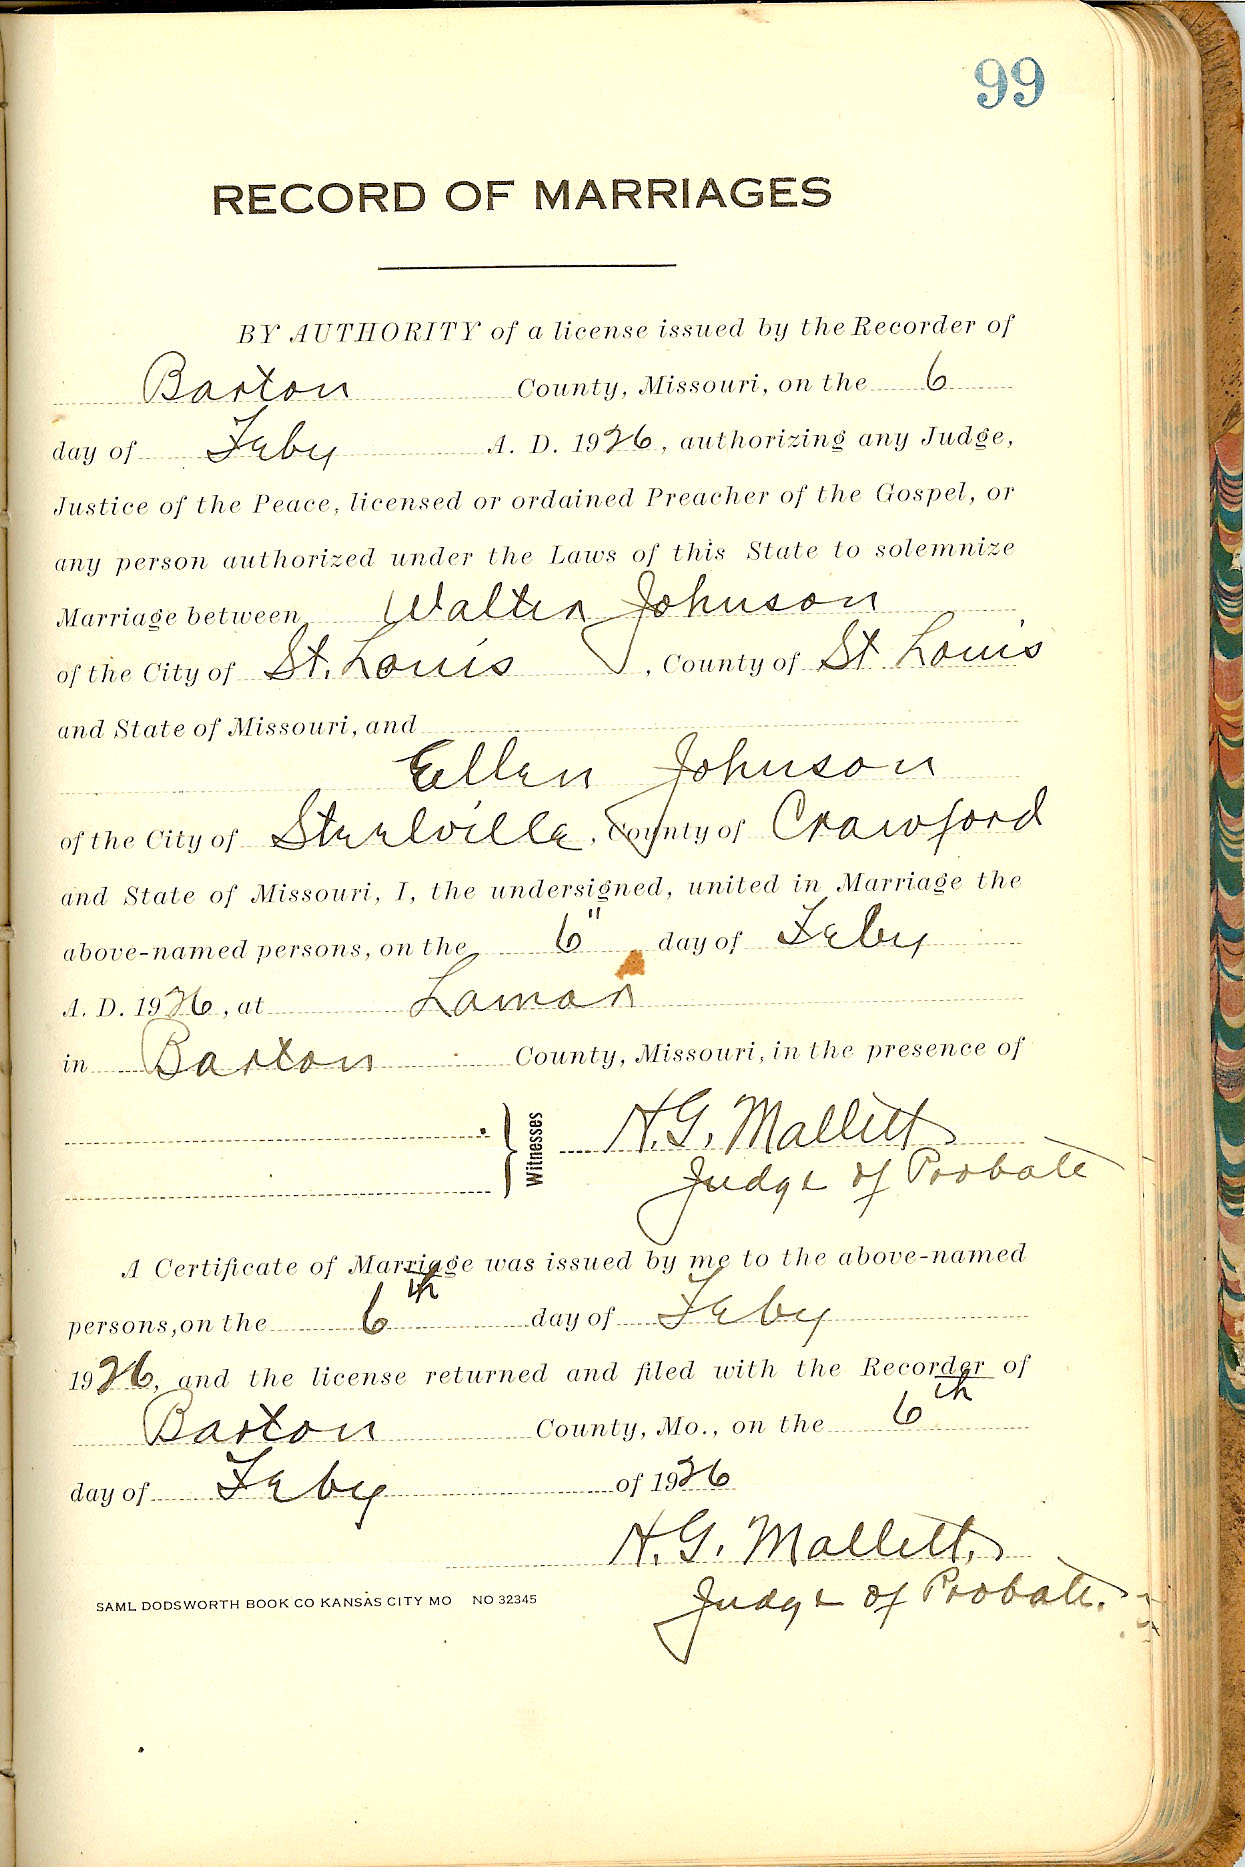 99
RECORD OF MARRIAGES
BY AUTHORITY of a license issued by the Recorder of
Barton County, Missouri, on the 6
day of Feby A. D. 1926, authorizing any Judge,
Justice of the Peace, licensed or ordained Preacher of the Gospel, or
any person authorized under the Laws of this State to solemnize
Marriage between Walter Johnson
of the City of St. Louis, County of St Louis
and State of Missouri, and
Ellen Johnson
of the City of Steelville, County of Crawford
and State of Missouri, I, the undersigned, united in Marriage the
above-named persons, on the 6" day of Feby
A. D. 1926, at Lamar
in Barton County, Missouri, in the presence of
Witnesses H. G. Mallett
Judge of Probate
A Certificate of Marriage was issued by me to the above-named
persons, on the 6th day of Feby
1926, and the license returned and filed with the Recorder of
Barton County, Mo., on the 6th
day of Feby of 1926
H. G. Mallett.
Judge of Probate.
SAML DODSWORTH BOOK CO KANSAS CITY MO NO 32345